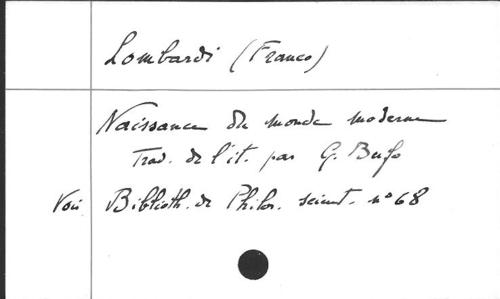 Lombardi (Franco)
Naissance du monde moderne
Trad. de l'it. par G. Bufo
Voir Biblioth. de Philos. scient. n° 68